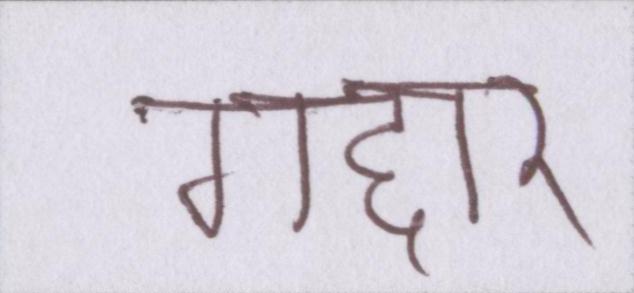 गद्दार